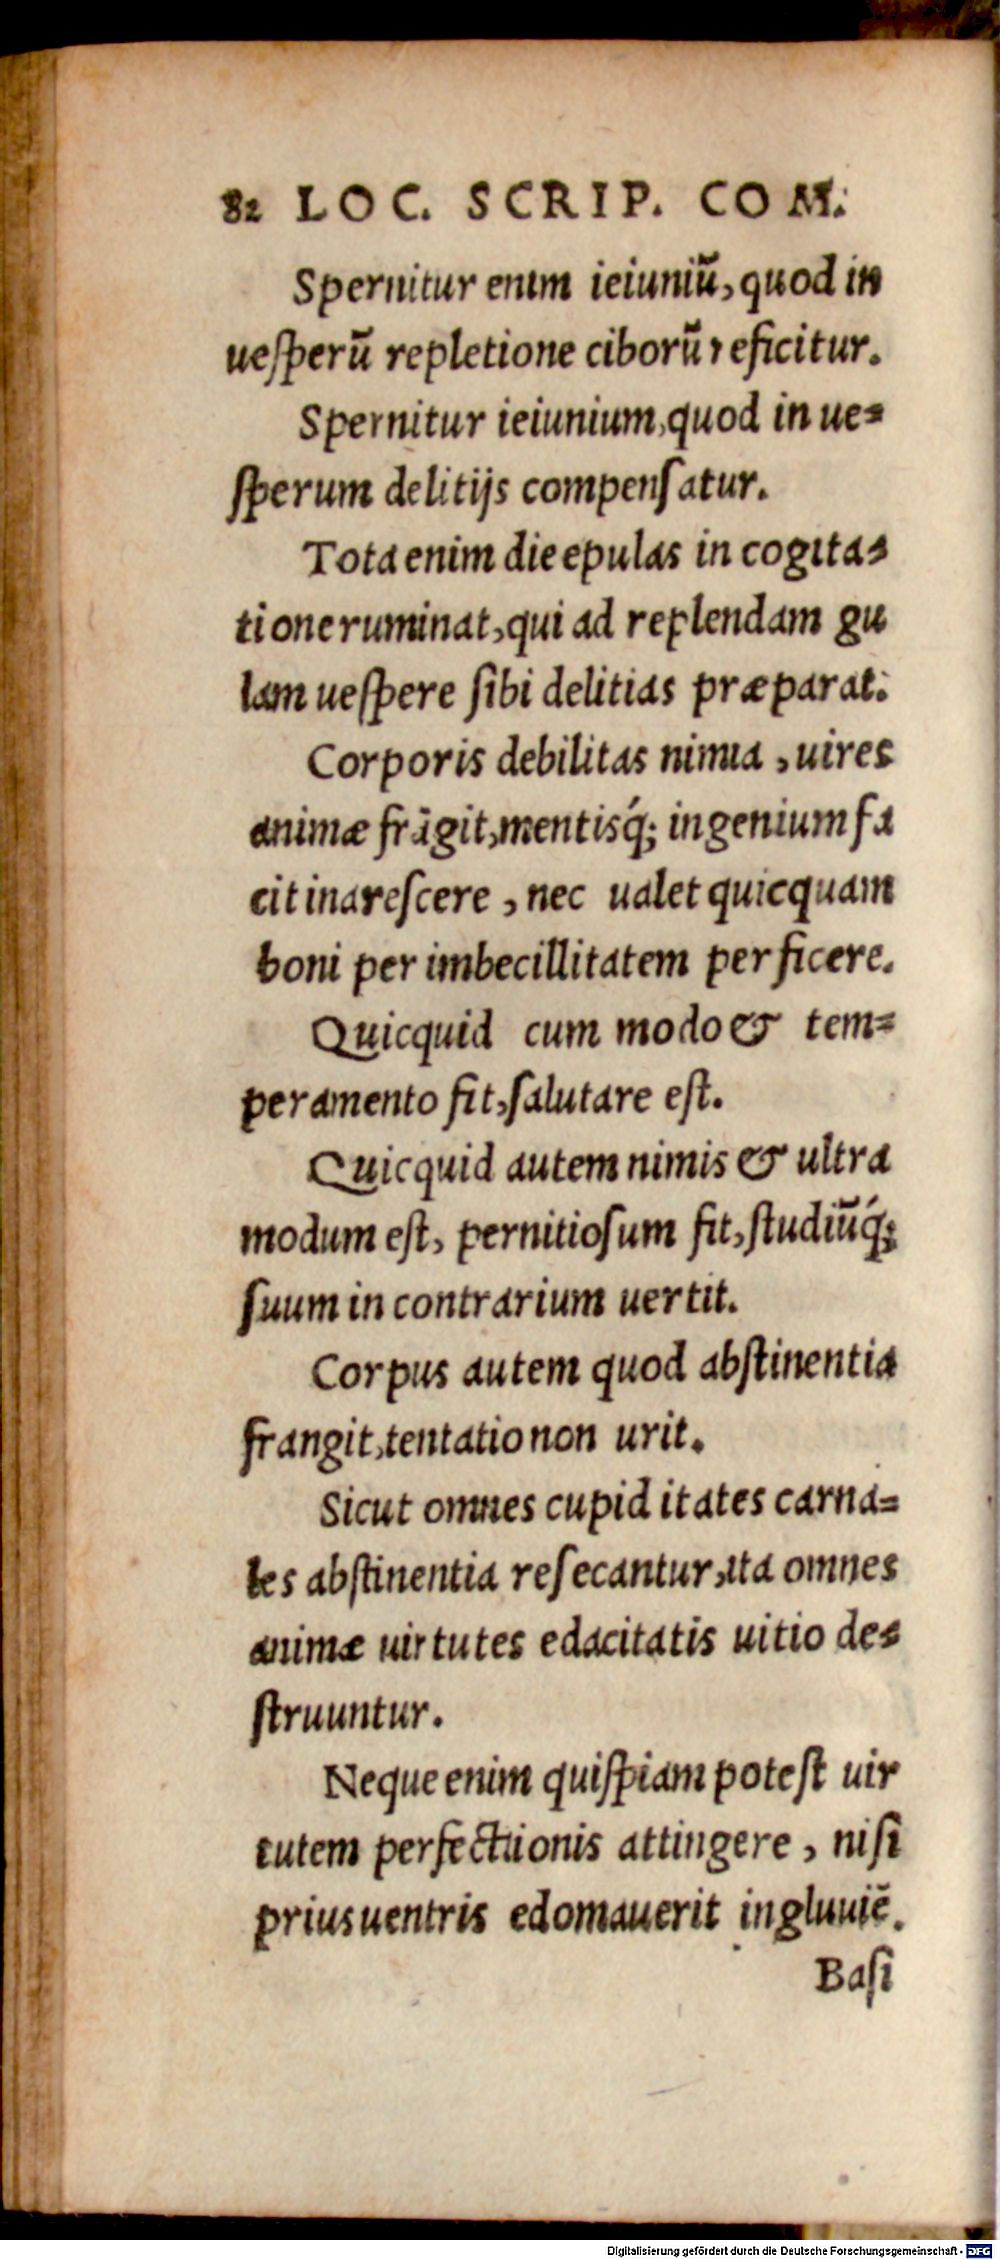 82 LOC. SCRIP. COM.
Spernitur enim ieiuniũ, quod in
ueſperũ repletione ciborũ reficitur.
Spernitur ieiunium, quod in ue=
ſperum delitijs compenſatur.
Tota enim die epulas in cogita=
tione ruminat, qui ad replendam gu
lam ueſpere ſibi delitias præparat.
Corporis debilitas nimia, uires
animæ frãgit, mentisq́; ingenium fa
cit inareſcere, nec ualet quicquam
boni per imbecillitatem perficere.
Quicquid cum modo & tem=
peramento fit, ſalutare eſt.
Quicquid autem nimis & ultra
modum eſt, pernitioſum fit, ſtudiũq́;
ſuum in contrarium uertit.
Corpus autem quod abſtinentia
frangit, tentatio non urit.
Sicut omnes cupiditates carna=
les abſtinentia reſecantur, ita omnes
animæ uirtutes edacitatis uitio de=
ſtruuntur.
Neque enim quiſpiam poteſt uir
tutem perfectionis attingere, niſi
prius uentris edomauerit ingluuiẽ.
Baſi
Digitalisierung gefördert durch die Deutsche Forschungsgemeinschaft - DFG